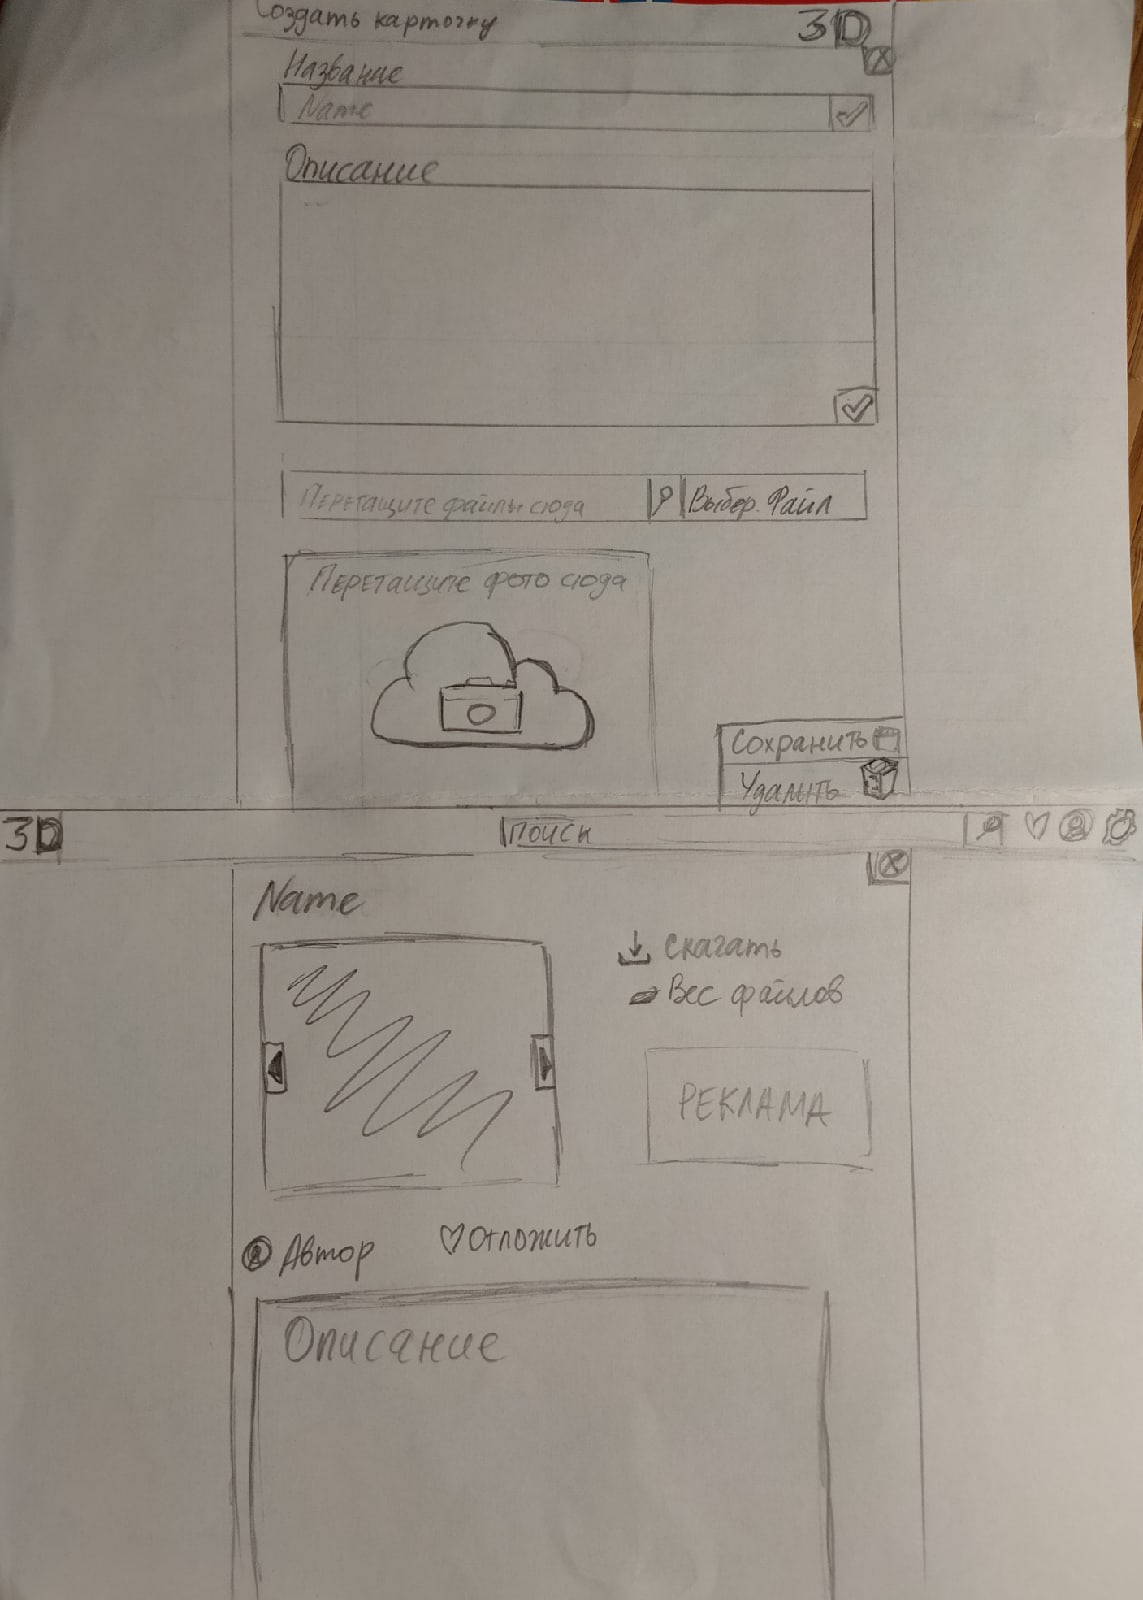 Создать карточку 3D
Название
Name
Описание
Перетащите файлы сюда Выбер. Файл
Перетащите фото сюда
Сохранить
Удалить
3D Поиск
Name
Скачать
Вес файлов
РЕКЛАМА
Автор Отложить
Описание